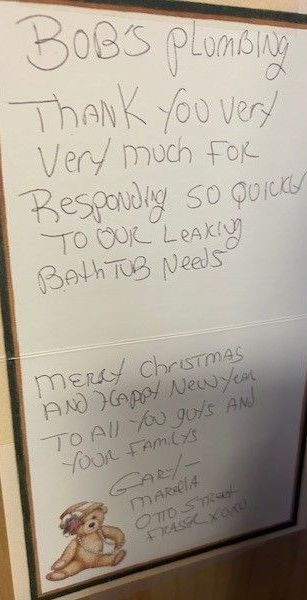 BOB'S PLUMBING
THANK YOU VERY
VERY MUCH FOR
RESPONDING SO QUICKLY
TO OUR LEAKING
BATHTUB NEEDS
MERRY CHRISTMAS
AND HAPPY NEW YEAR
TO ALL YOU GUYS AND
YOUR FAMILYS
GARY-
OTTO STREET
FRASER XOXO